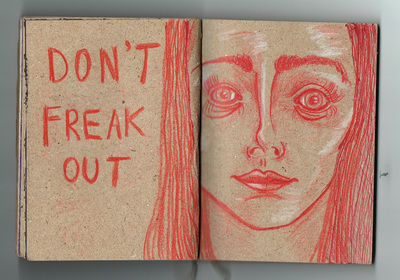 DON'T
FREAK
OUT